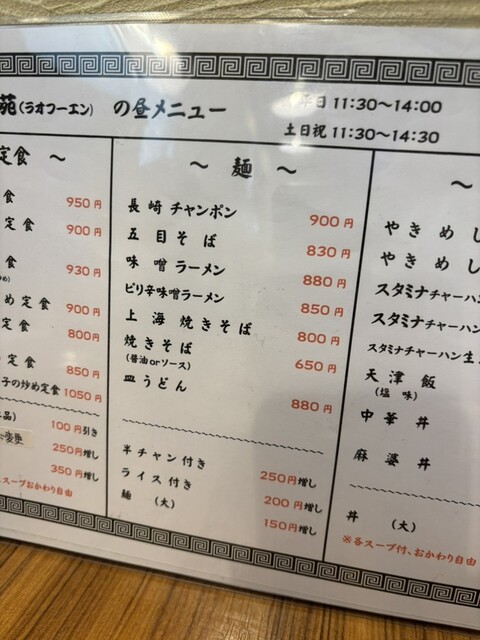 苑(ラオフーエン) の昼メニュー
平日 11:30～14:00
土日祝 11:30～14:30
定食 ～
食 950円
定食 900円
食 930円
め定食 900円
定食 800円
定食 850円
子の炒め定食 1050円
品) 100円引き
変更 250円増し
350円増し
スープおかわり自由
～ 麺 ～
長﨑チャンポン 900円
五目そば 830円
味噌ラーメン 880円
ピリ辛味噌ラーメン 850円
上海焼きそば 800円
焼きそば 650円
(醤油orソース)
皿うどん 880円
半チャン付き 250円増し
ライス付き 200円増し
麺 (大) 150円増し
～
やきめし
やきめし
スタミナチャーハン
スタミナチャーハン
スタミナチャーハン生
天津飯
(塩味)
中華丼
麻婆丼
丼 (大)
※各スープ付、おかわり自由